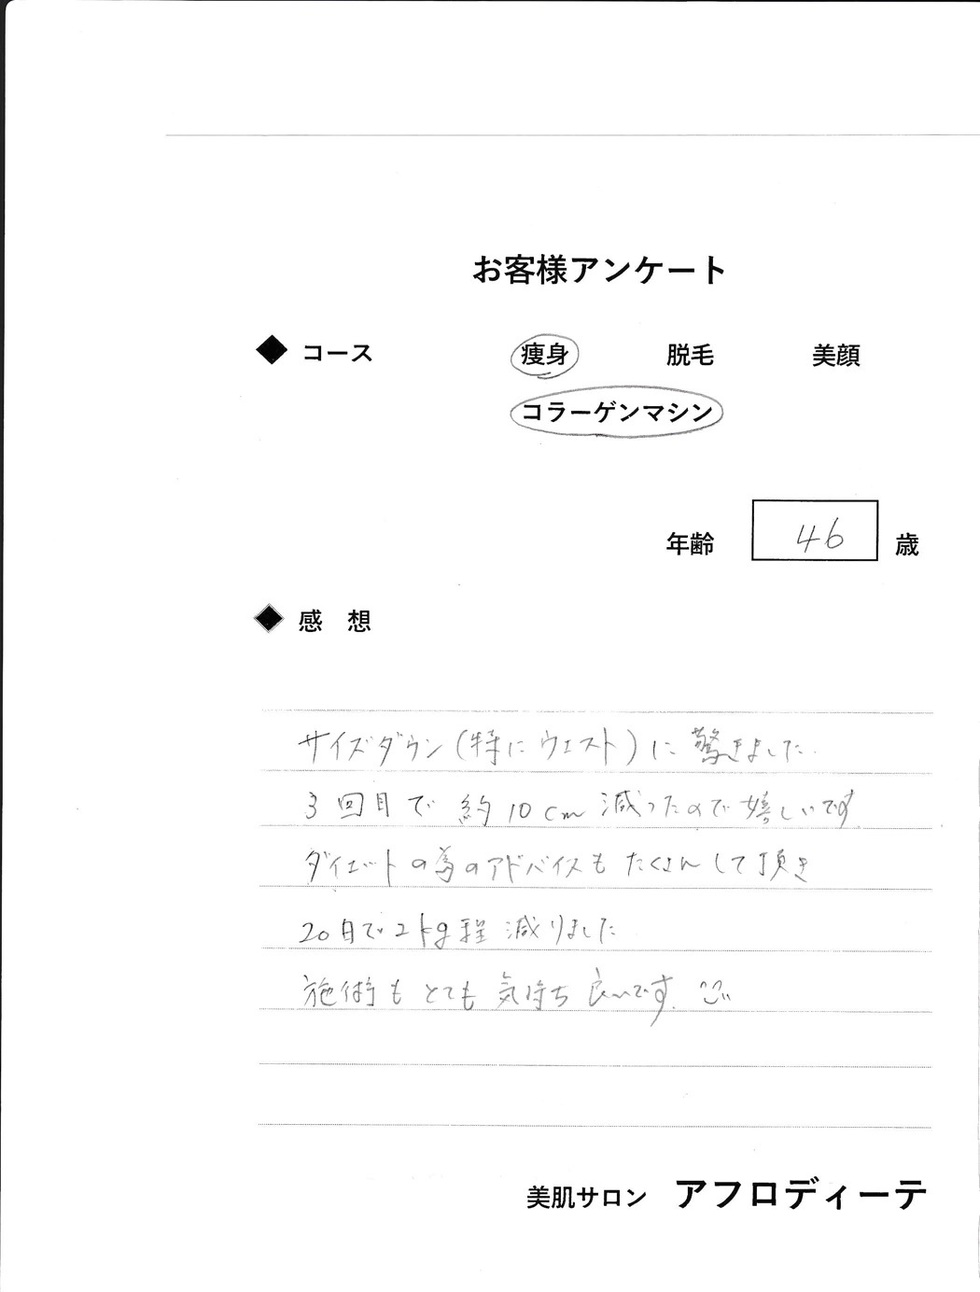 お客様アンケート
◆ コース 痩身 脱毛 美顔
コラーゲンマシン
年齢 46 歳
◆ 感 想
サイズダウン(特にウエスト)に驚きました.
3回目で約10cm減ったので嬉しいです
ダイエットの為のアドバイスもたくさんして頂き
20日で2kg程減りました
施術もとても気持ち良いです.
美肌サロン アフロディーテ